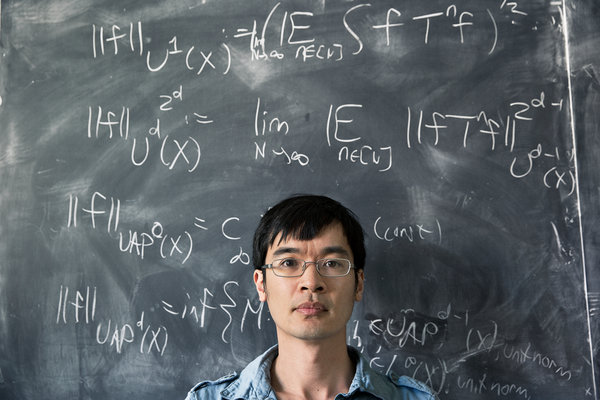 ||f||_{U^1(X)} = (lim_{N→∞} E_{n∈[N]} ∫ f T^n f)^{1/2}
||f||_{U^d(X)}^{2^d} := lim_{N→∞} E_{n∈[N]} ||f T^n f||_{U^{d-1}(X)}^{2^{d-1}}
||f||_{UAP^0(X)} = c (const)
||f||_{UAP^d(X)} := inf { M
∈ UAP^{d-1}(X)
(X), unit norm
unit norm